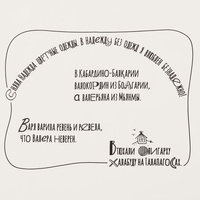 Снова надежда цветные одежды. В надежду без одежд я влюблен безнадежно!
В Кабардино-Балкарии
валокордин из Болгарии,
а валерьяна из Мьянмы.
Варя варила ревень и
что Валера неверен.
Втюхали олигарху
халабуду на Галапагосах.